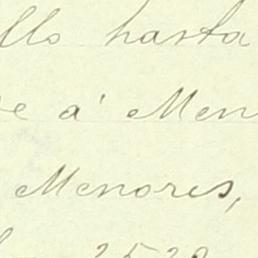 llo hasta
e á Men
Menores,